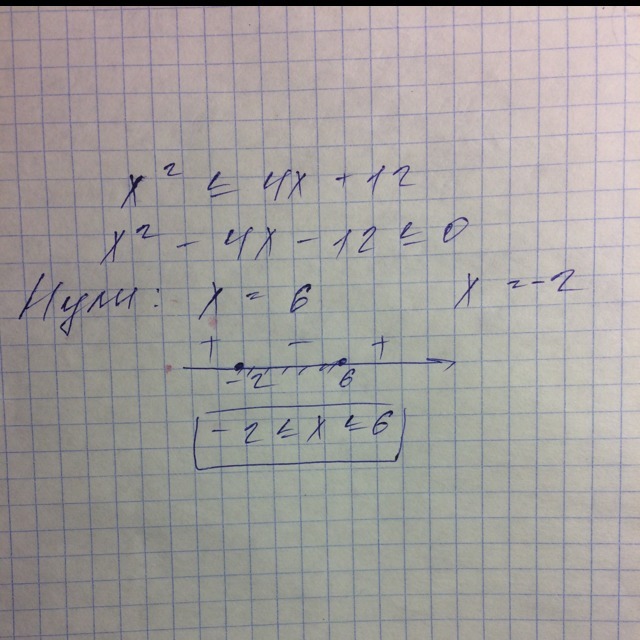 x² ≤ 4x + 12
x² - 4x - 12 ≤ 0
Нули: x = 6 x = -2
+ - +
-2 6
-2 ≤ x ≤ 6